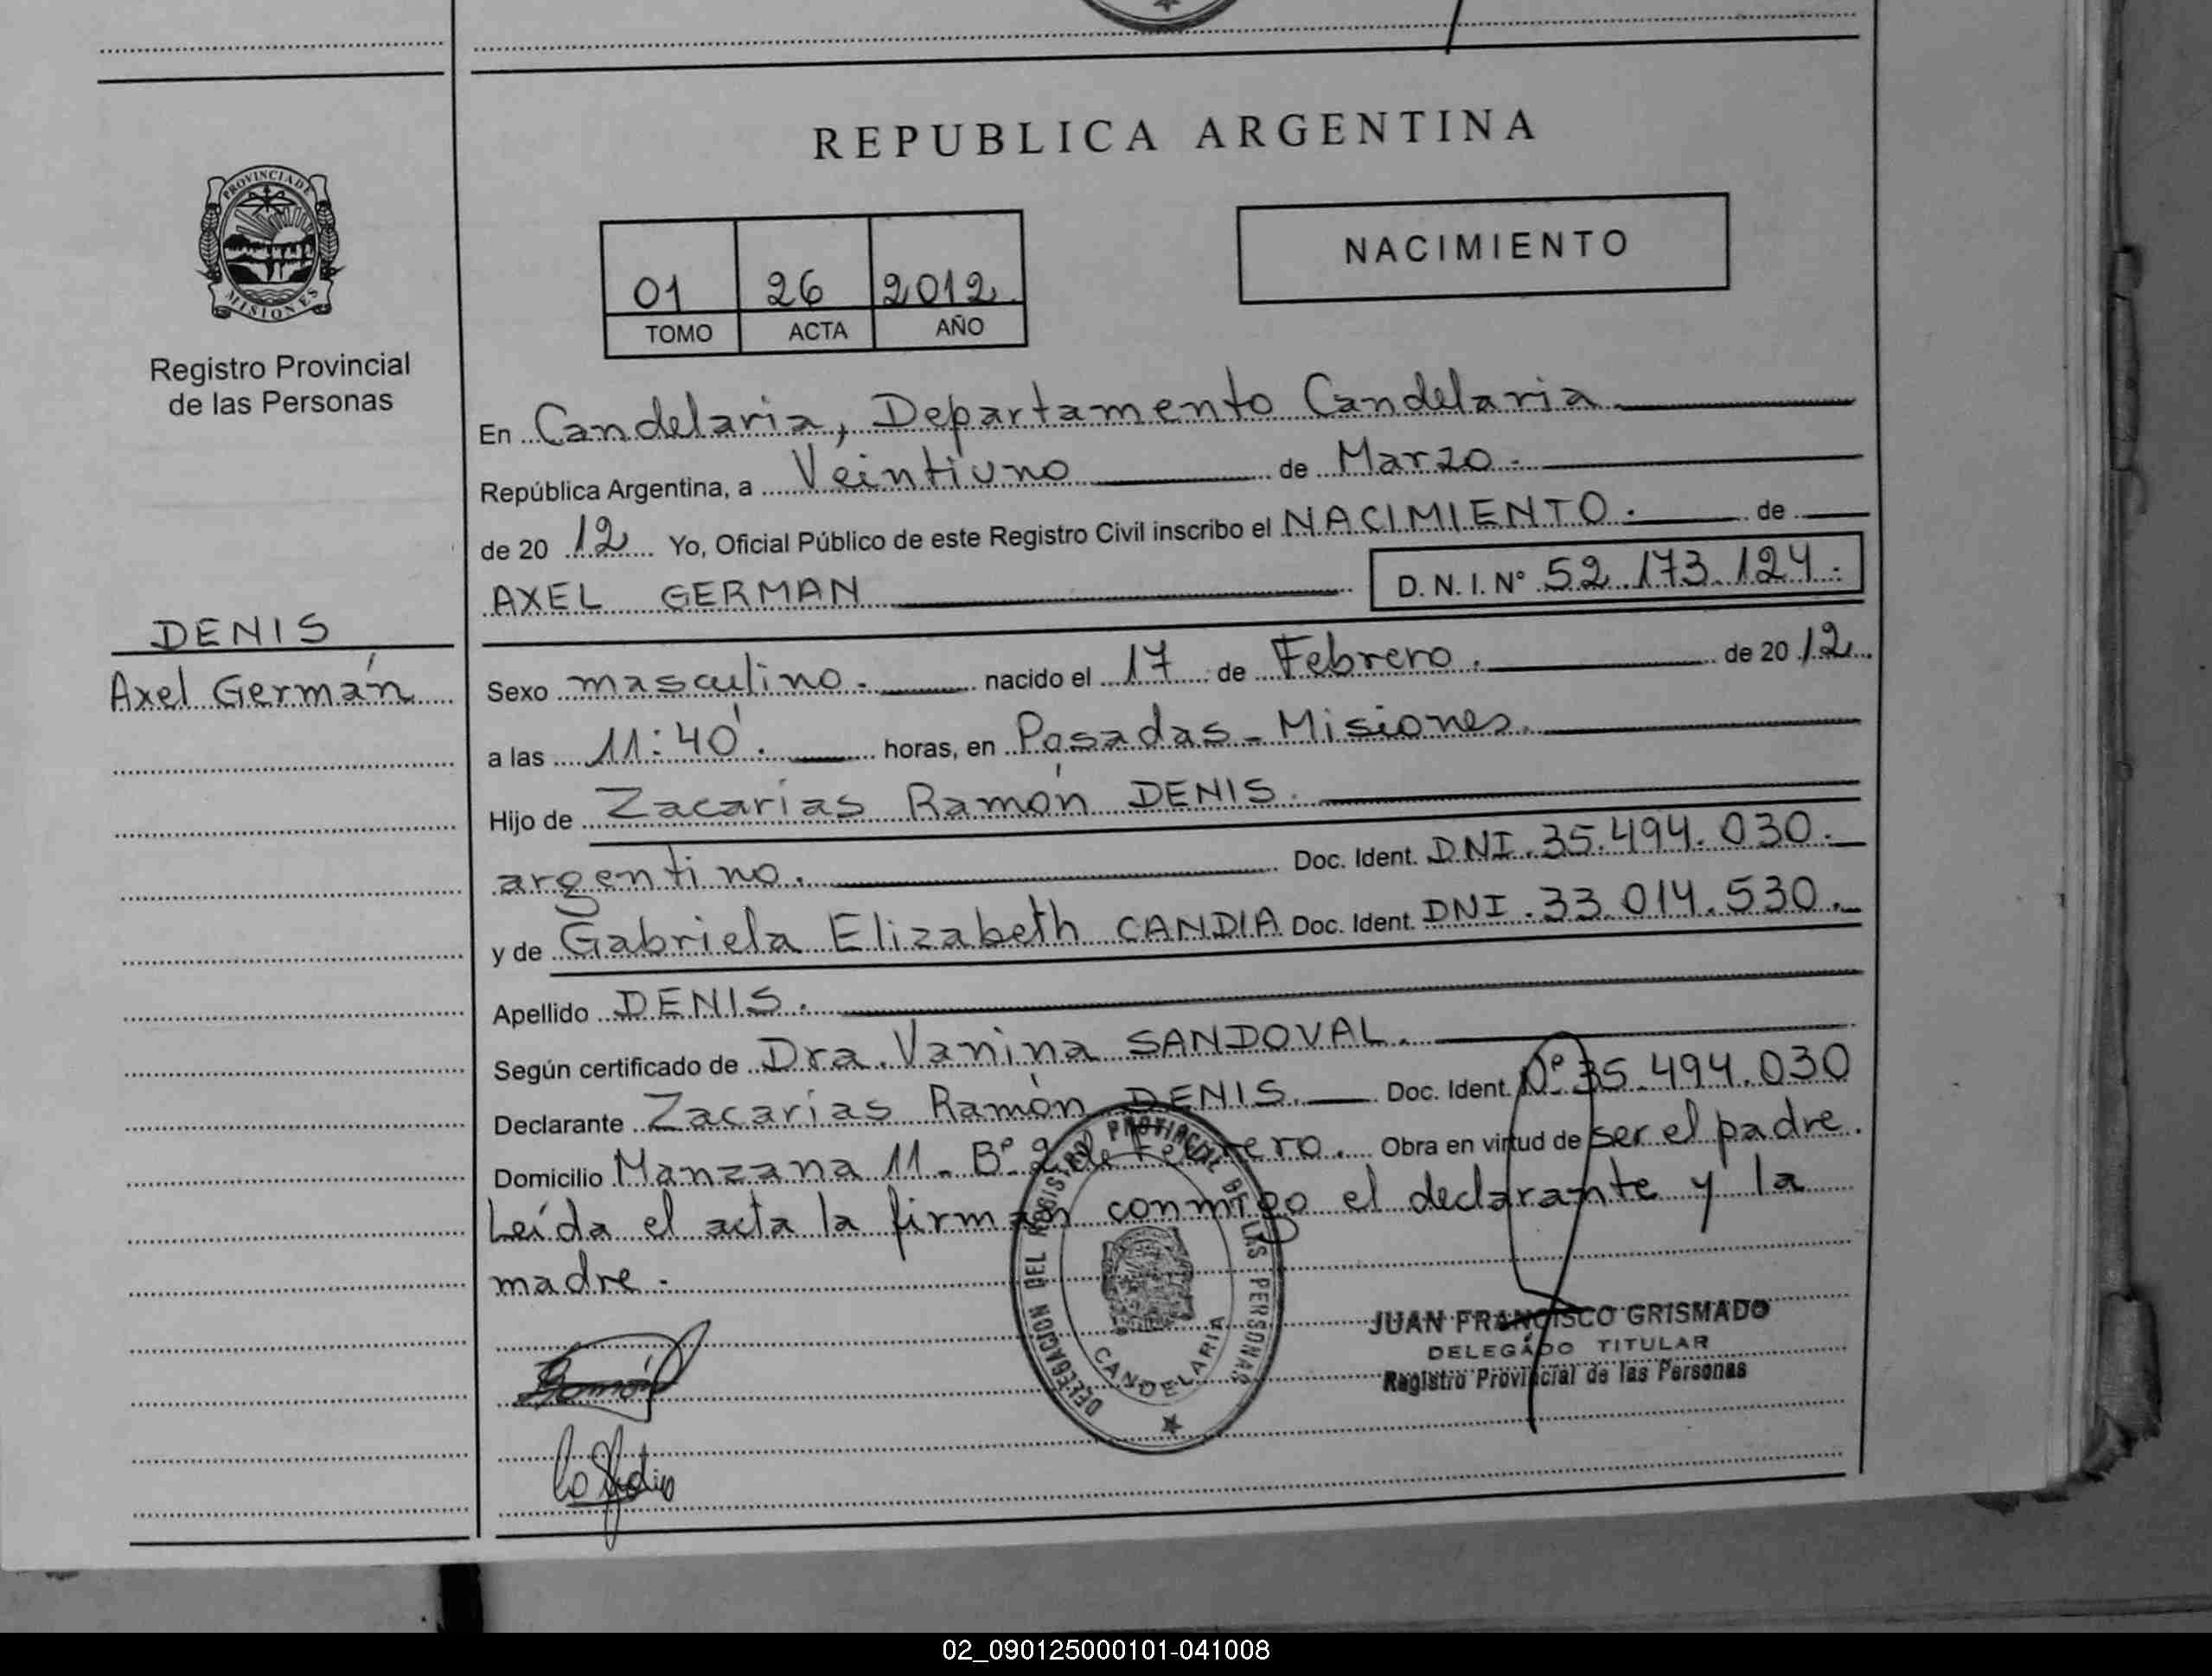 REPUBLICA ARGENTINA
PROVINCIA DE
MISIONES
Registro Provincial
de las Personas
01 26 2012
TOMO ACTA AÑO
NACIMIENTO
En Candelaria, Departamento Candelaria
República Argentina, a Veintiuno de Marzo.
de 20 12 Yo, Oficial Público de este Registro Civil inscribo el NACIMIENTO. de
AXEL GERMAN D. N. I. N° 52.173.124.
DENIS
Axel Germán
Sexo masculino. nacido el 17 de Febrero. de 20 12
a las 11:40'. horas, en Posadas - Misiones.
Hijo de Zacarías Ramón DENIS.
argentino. Doc. Ident. DNI. 35.494.030.
y de Gabriela Elizabeth CANDIA Doc. Ident. DNI. 33.014.530.
Apellido DENIS.
Según certificado de Dra. Vanina SANDOVAL.
Declarante Zacarías Ramón DENIS. Doc. Ident. N° 35.494.030
Domicilio Manzana 11 - B° 2 de Febrero. Obra en virtud de ser el padre.
Leída el acta la firman conmigo el declarante y la
madre.
DELEGACION DEL REGISTRO PROVINCIAL DE LAS PERSONAS
CANDELARIA
JUAN FRANCISCO GRISMADO
DELEGADO TITULAR
Registro Provincial de las Personas
Ramón
02_090125000101-041008